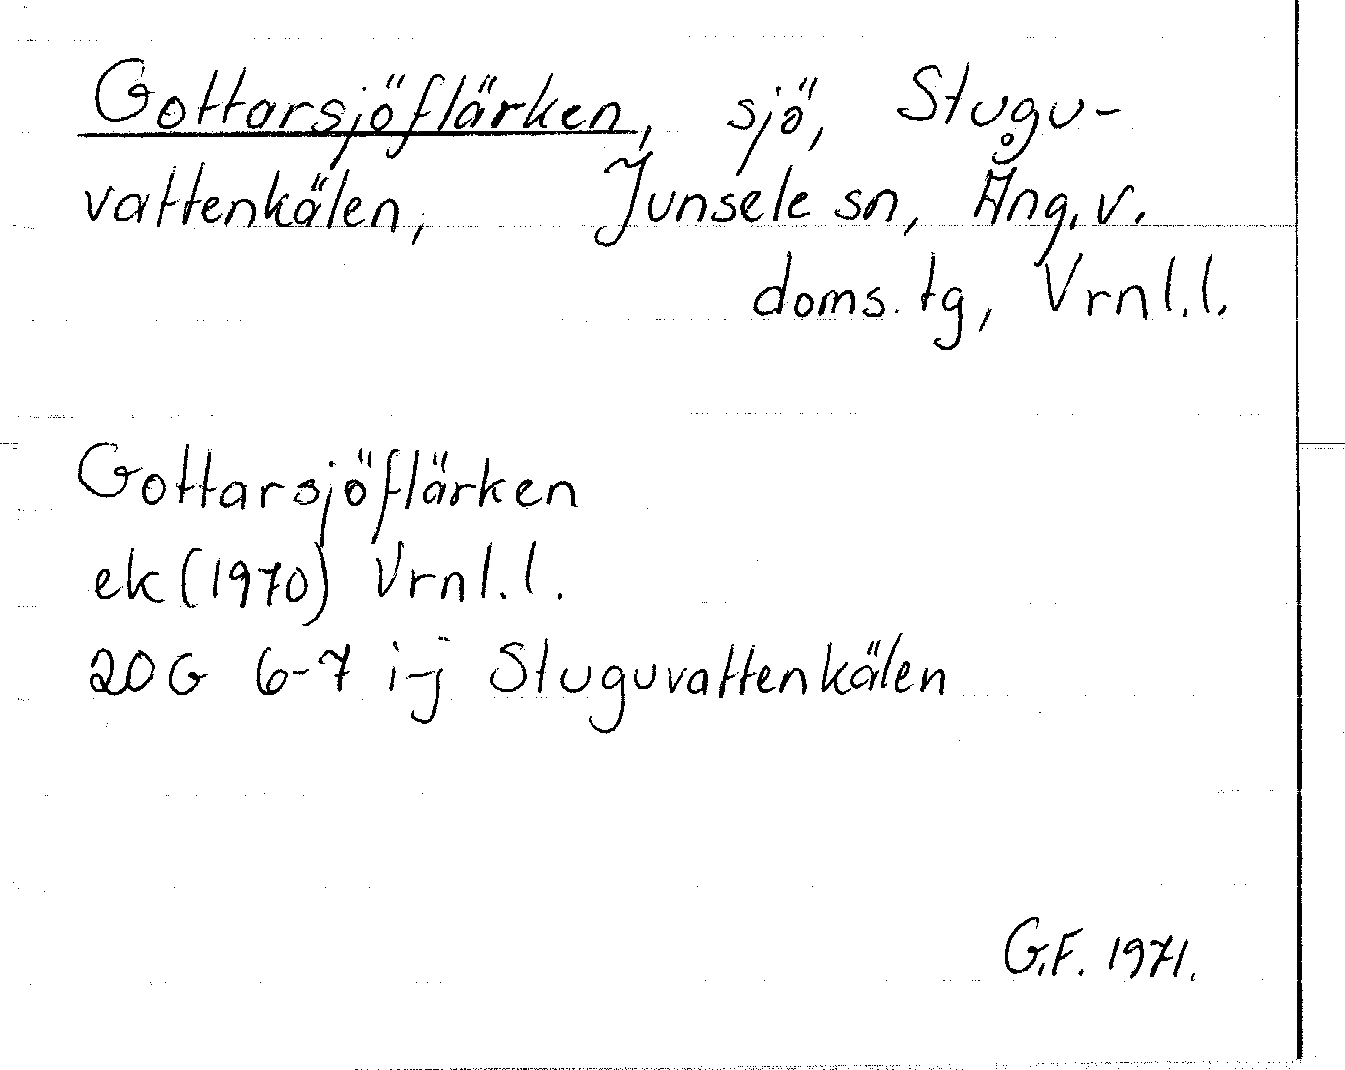 Gottarsjöflärken, sjö, Stugu-
vattenkälen, Junsele sn, Ång. v.
doms. tg, Vrnl. l.
Gottarsjöflärken
ek (1970) Vrnl. l.
20 G 6-7 i-j Stuguvattenkälen
G.F. 1971.